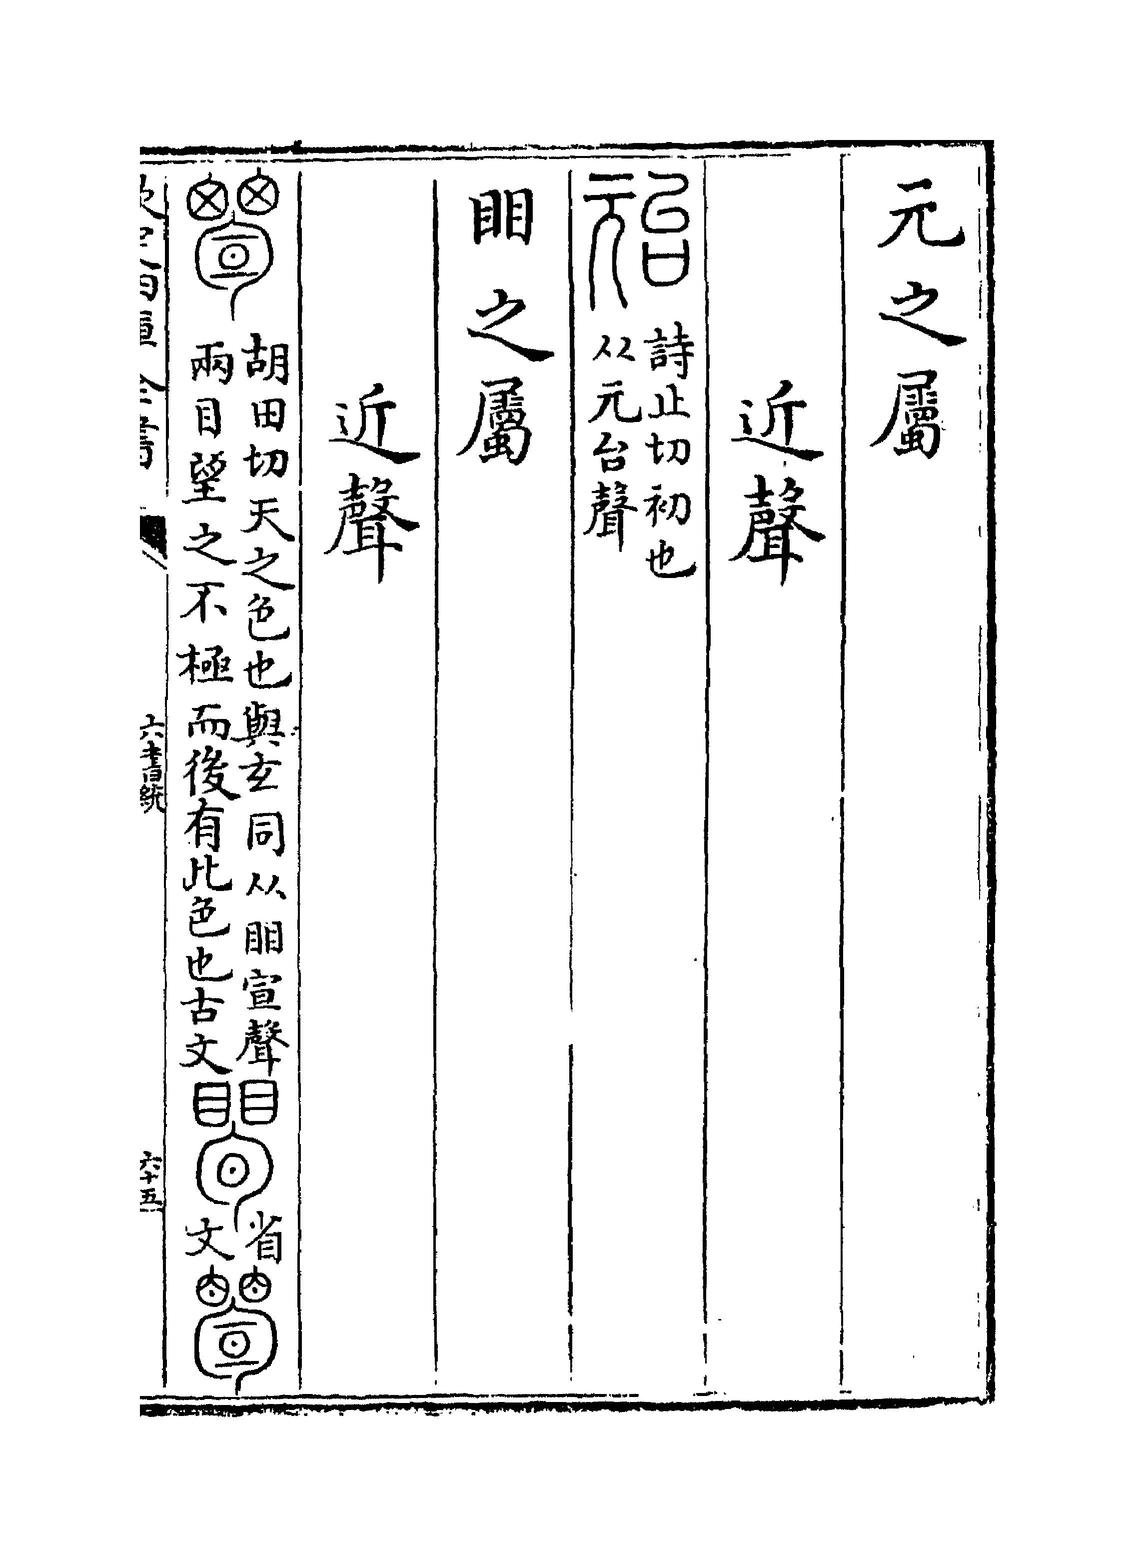 元之屬
近聲
詩止切初也
从元台聲
䀠之屬
近聲
胡田切天之色也與玄同从䀠宣聲
兩目望之不極而後有此色也古文
省
文
六書統
六十五